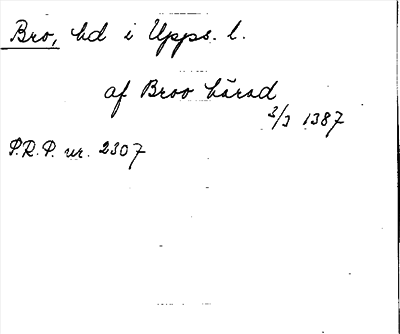 Bro, hd i Upps. l.
af Broo härad
2/3 1387
P.R.P. nr. 2307